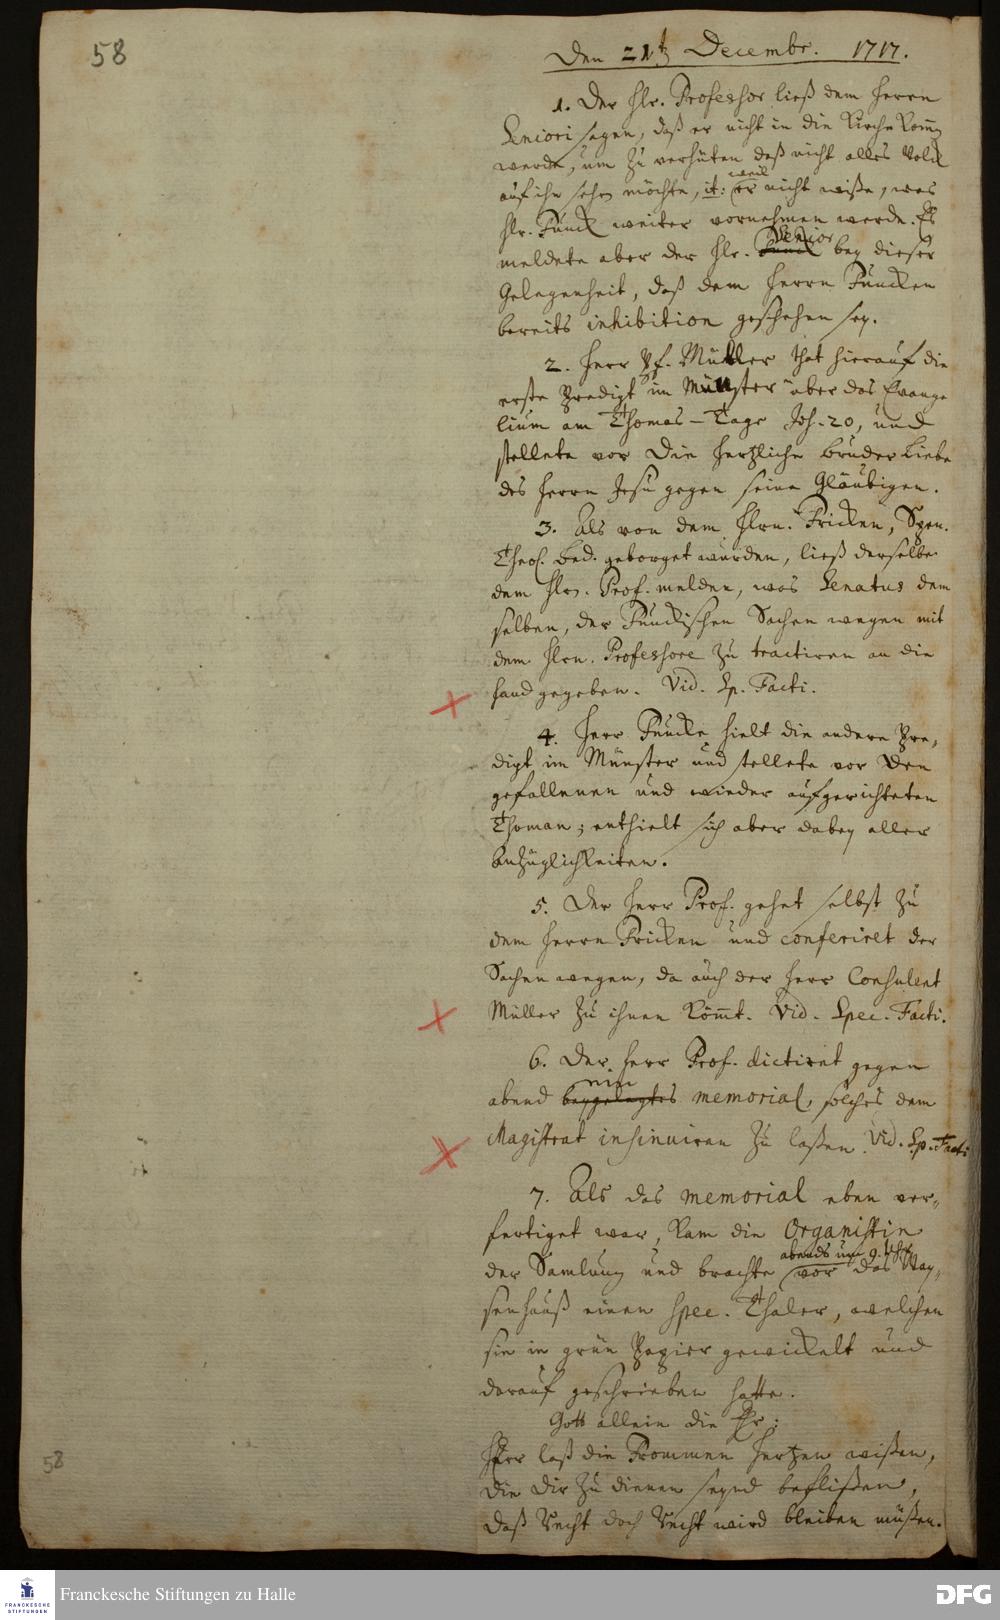 58
Den 21t. Decembr. 1717.
1. Der Hr. Professor ließ dem Herrn
Seniori sagen, daß er nicht in die Kirche kom̃en
werde, um zu verhüten daß nicht alles Volck
auf ihn sehen möchte, it: weil er nicht wiße, was
Hr. Funck weiter vornehmen werde. Es
meldete aber der Hr. Senior bey dieser
Gelegenheit, daß dem Herrn Funcken
bereits inhibition geschehen sey.
2. Herr Pf. Müller that hierauf die
erste Predigt im Münster über das Evange
lium am Thomas-Tage Joh. 20, und
stellete vor die hertzliche bruder Liebe
des Herrn Jesu gegen seine Gläubigen.
3. Als von dem Hrn. Fricken, Spen.
Theol. Bed. geborget wurden, ließ derselbe
dem Hrn. Prof. melden, was Senatus dem
selben, der Funckischen Sachen wegen mit
dem Hrn. Professore zu tractiren an die
Hand gegeben. Vid. Sp. Facti.
4. Herr Funcke hielt die andere Pre,
digt im Münster und stellete vor den
gefallenen und wieder aufgerichteten
Thoman; enthielt sich aber dabey aller
Anzüglichkeiten.
5. Der Herr Prof. gehet selbst zu
dem Herrn Fricken und conferiret der
Sachen wegen, da auch der Herr Consulent
Müller zu ihnen köm̃t. Vid. Spec. Facti.
6. Der Herr Prof. dictiret gegen
abend ein beygelegtes memorial, solches dem
Magistrat insinuiren zu laßen. Vid. Sp. Facti
7. Als das memorial eben ver,,
fertiget war, kam die Organistin
der Samlung und brachte abends um 9. Uhr vor das Way,,
senhauß einen Spec. Thaler, welchen
sie in grün Papier gewickelt und
darauf geschrieben hatte.
Gott allein die Ehr:
Herr laß die Frommen Hertzen wißen,
die dir zu dienen seynd beflißen,
daß Recht doch Recht wird bleiben müßen.
58
FRANCKESCHE
STIFTUNGEN
Franckesche Stiftungen zu Halle
DFG